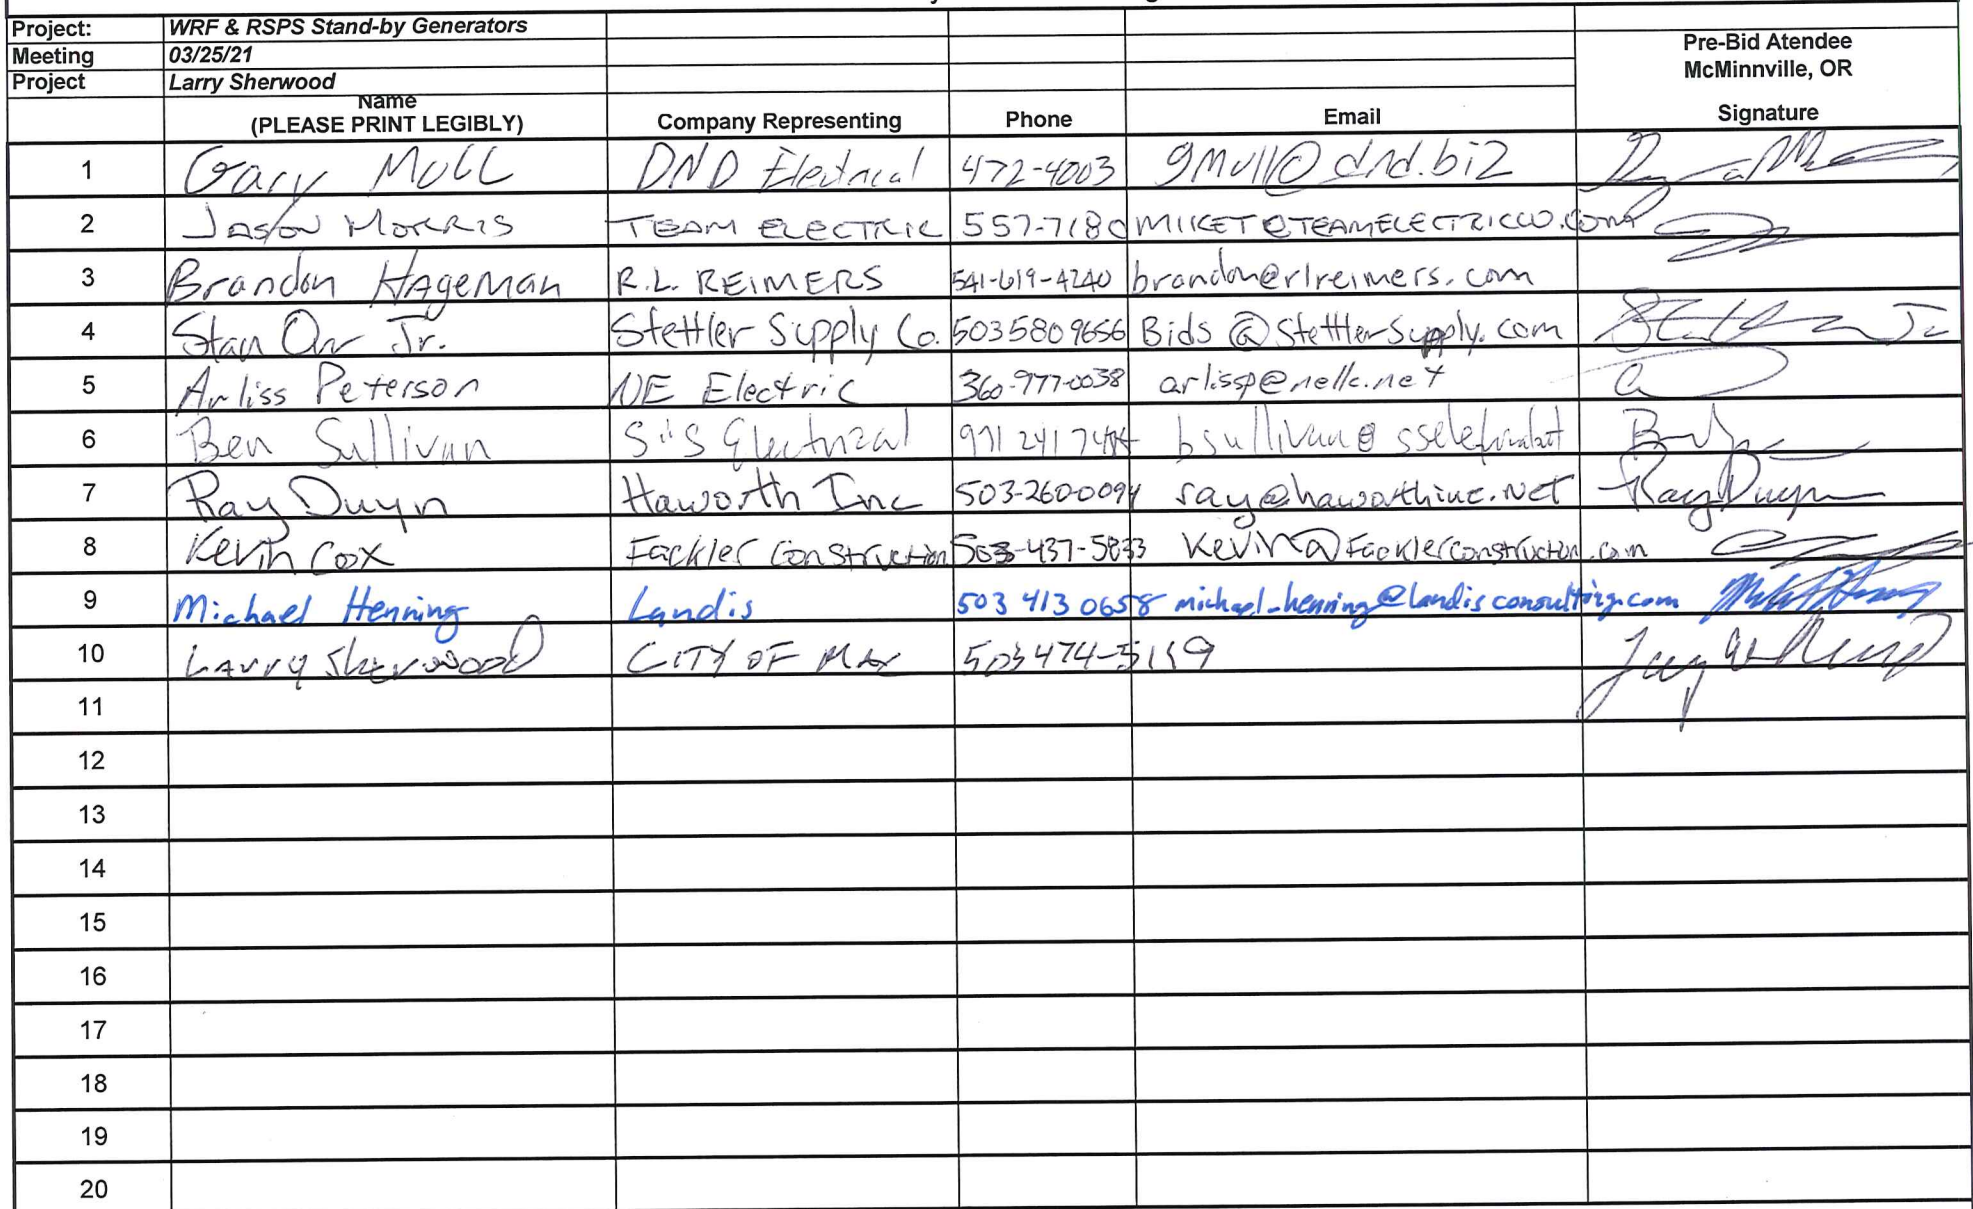 Project: WRF & RSPS Stand-by Generators
Meeting 03/25/21
Project Larry Sherwood
Pre-Bid Atendee
McMinnville, OR
Name
(PLEASE PRINT LEGIBLY) Company Representing Phone Email Signature
1 Gary Mull DND Electrical 472-4003 gmull@dnd.biz
2 JASON MORRIS TEAM ELECTRIC 557-7180 MIKET@TEAMELECTRICCO.COM
3 Brandon Hageman R.L. REIMERS 541-619-4240 brandon@rlreimers.com
4 Stan Orr Jr. Stettler Supply Co. 503 580 9656 Bids @ StettlerSupply.com
5 Arliss Peterson NE Electric 360-977-0038 arlissp@nellc.net
6 Ben Sullivan S&S Electrical 971 241
7 Ray Duyn Haworth Inc 503-260-0094 ray@haworthinc.net Ray Duyn
8 Kevin Cox Fackler Construction 503-437-5833 Kevin@Facklerconstruction.com
9 Michael Henning Landis 503 413 0658 michael_henning@landisconsulting.com
10 Larry Sherwood CITY OF MAC 503 474-5119
11
12
13
14
15
16
17
18
19
20